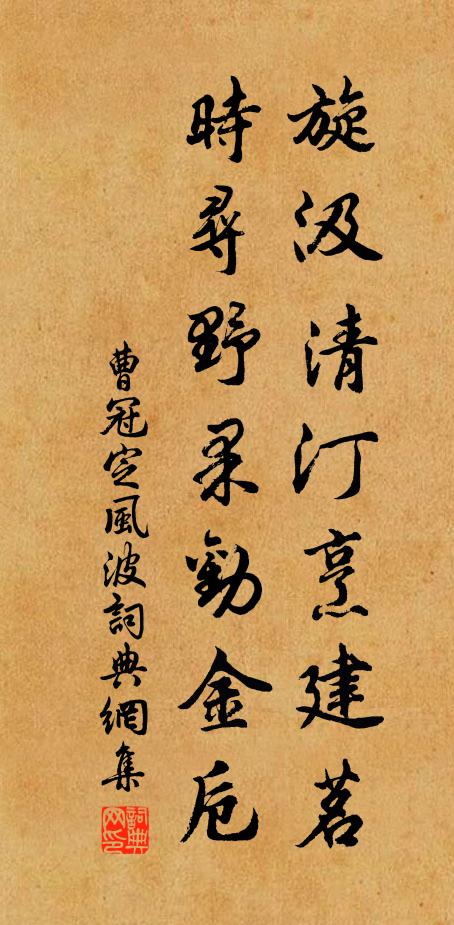 旋汲清汀烹建茗
時尋野果勸金卮
曹冠定風波詞典網集
詞典網印